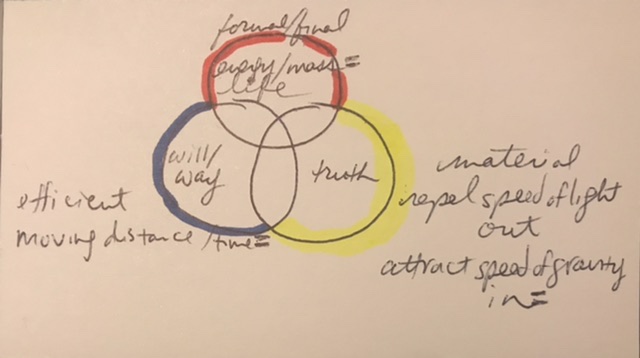 formal/final
energy/mass =
life
will/
way
truth
efficient
moving distance/time=
material
repel speed of light
out
attract speed of gravity
in=